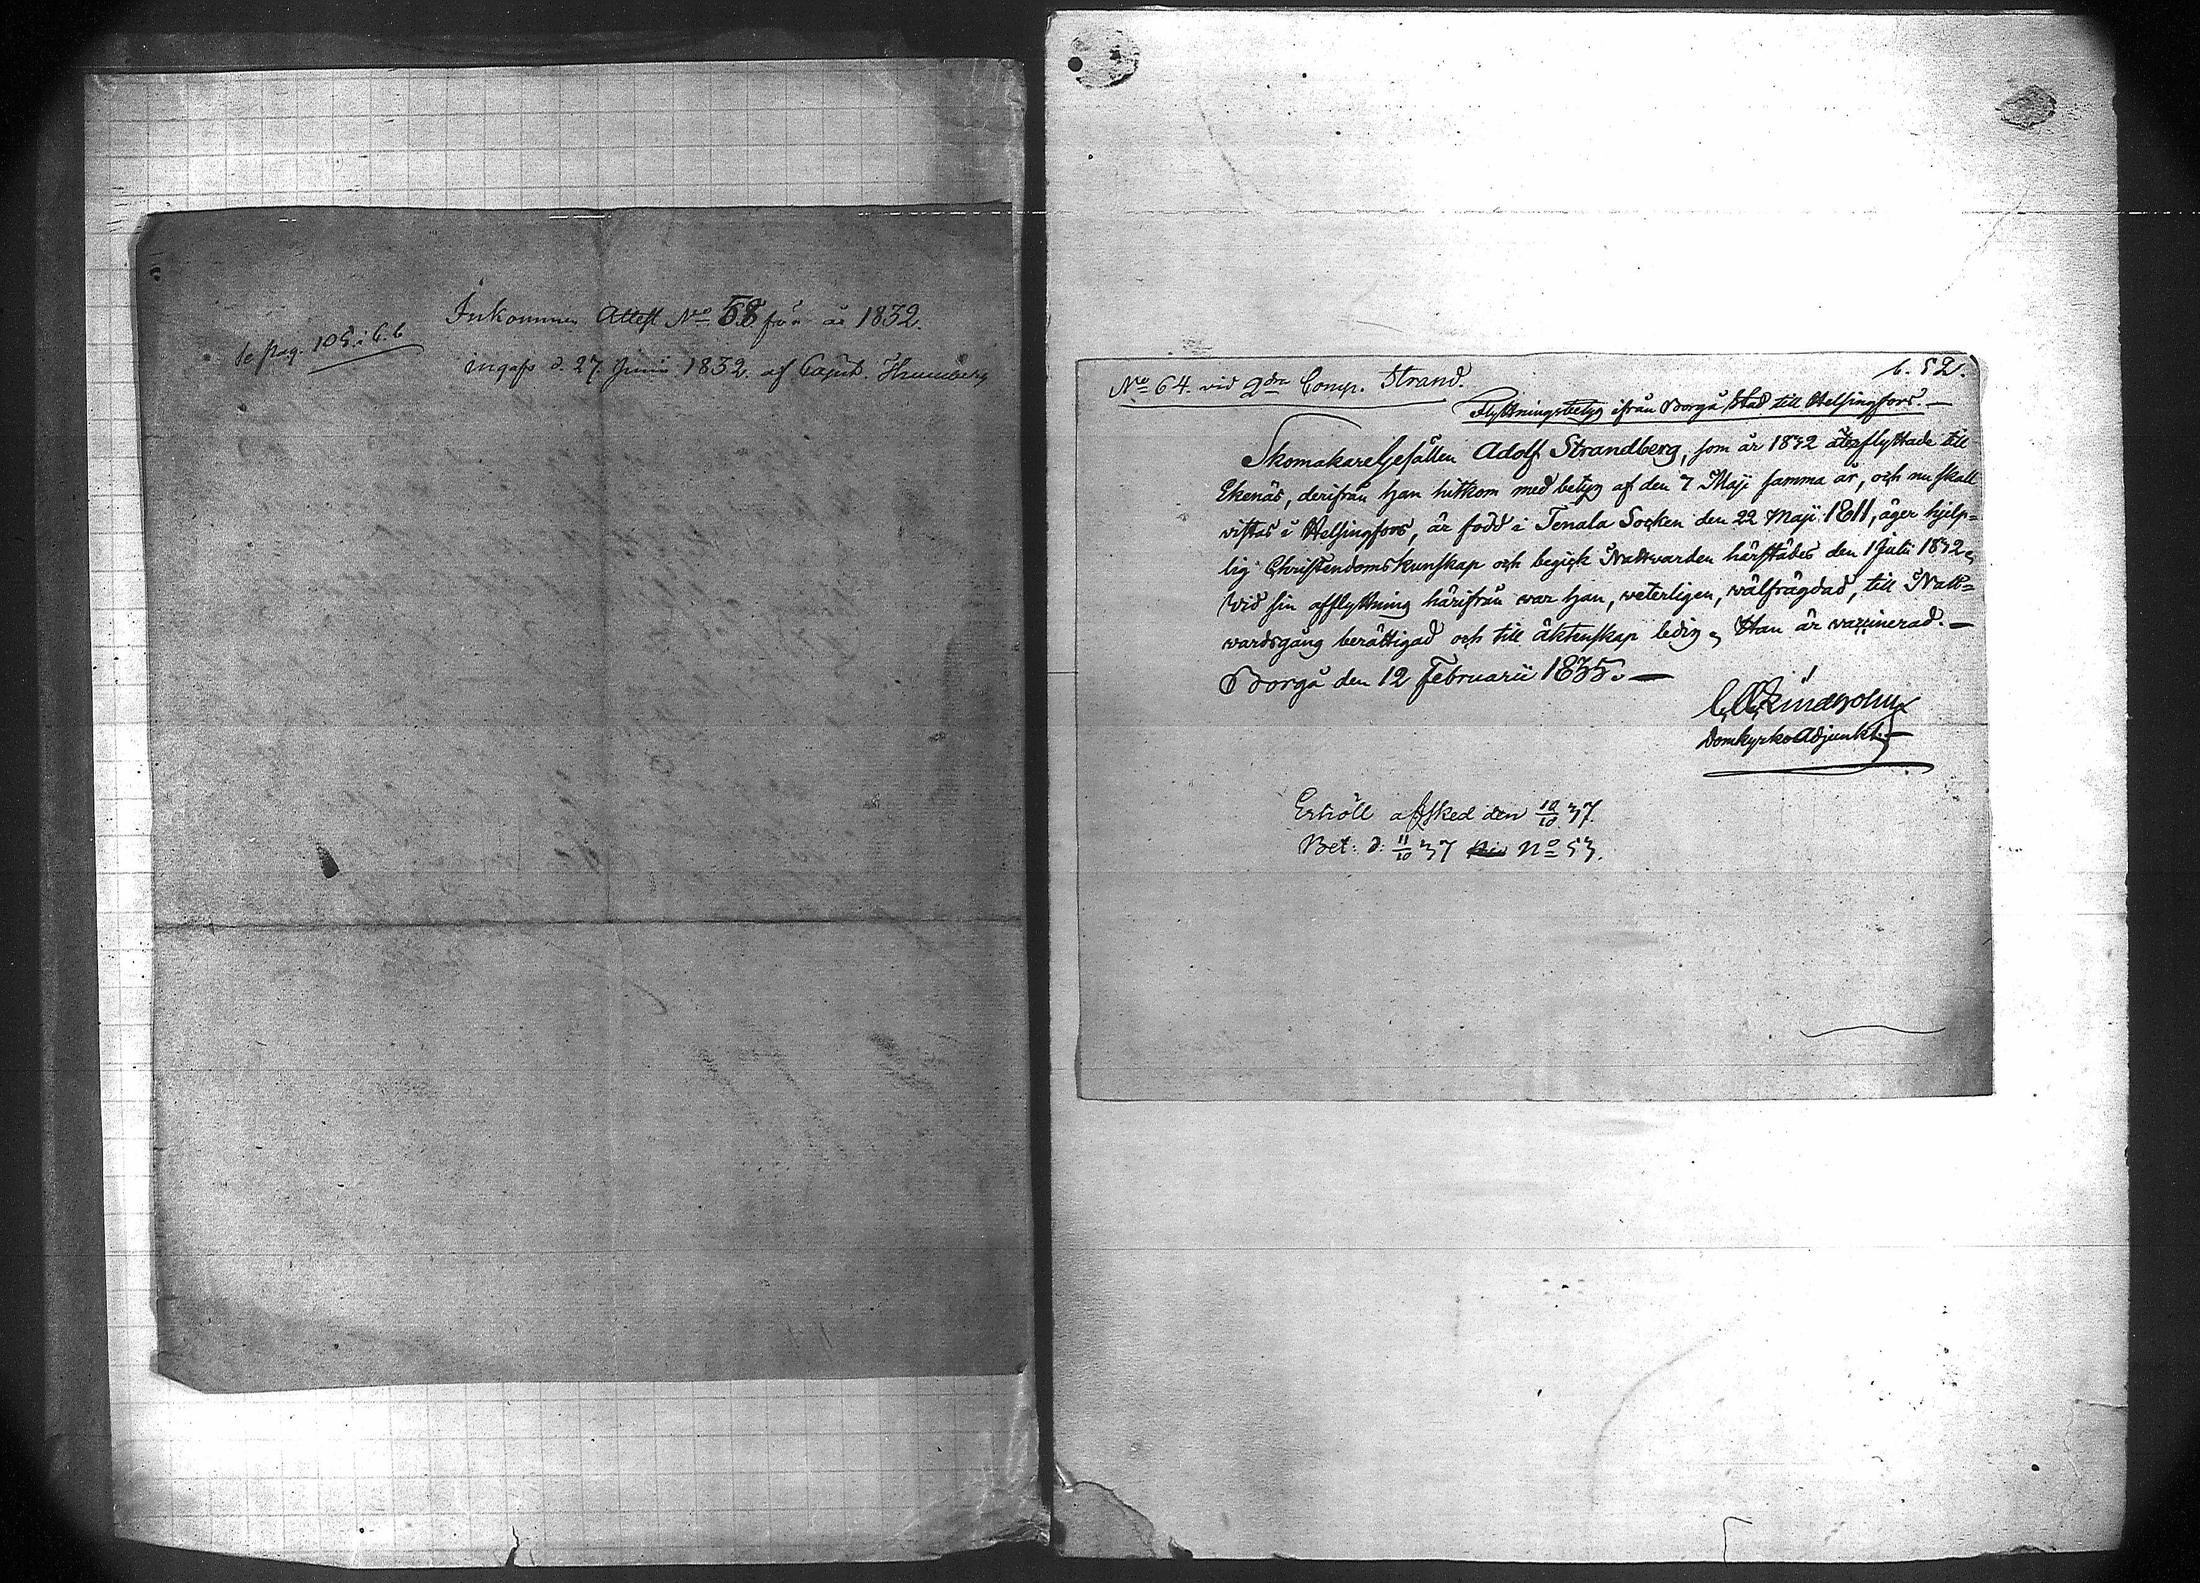 Inkommen Attest No 58 från år 1832.
se pag. 105 i C.b
ingafs d. 27 Junii 1832. af Capit.
No 64. vid 2dra Comp. Strand.
b. 52.
Flyttningsbetyg ifrån Borgå Stad till Helsingfors.—
Skomakare Gesällen Adolf Strandberg, som år 1832 återflyttade till
Ekenäs, derifrån han hitkom med betyg af den 7 Maji samma år, och nu skall
vistas i Helsingfors, är född i Tenala Socken den 22 Maji 1811, äger hjelp=
lig Christendomskunskap och begick Nattvarden härstädes den 1 Julii 1832.
Wid sin afflyttning härifrån war han, veterligen, wälfrägdad, till Natt=
wardsgång berättigad och till äktenskap ledig. Han är vaccinerad.—
Borgå den 12 Februarii 1835.—
Domkyrko Adjunkt.—
Erhöll afsked den 10/10 37.
Bet: d: 11/10 37 No 53.